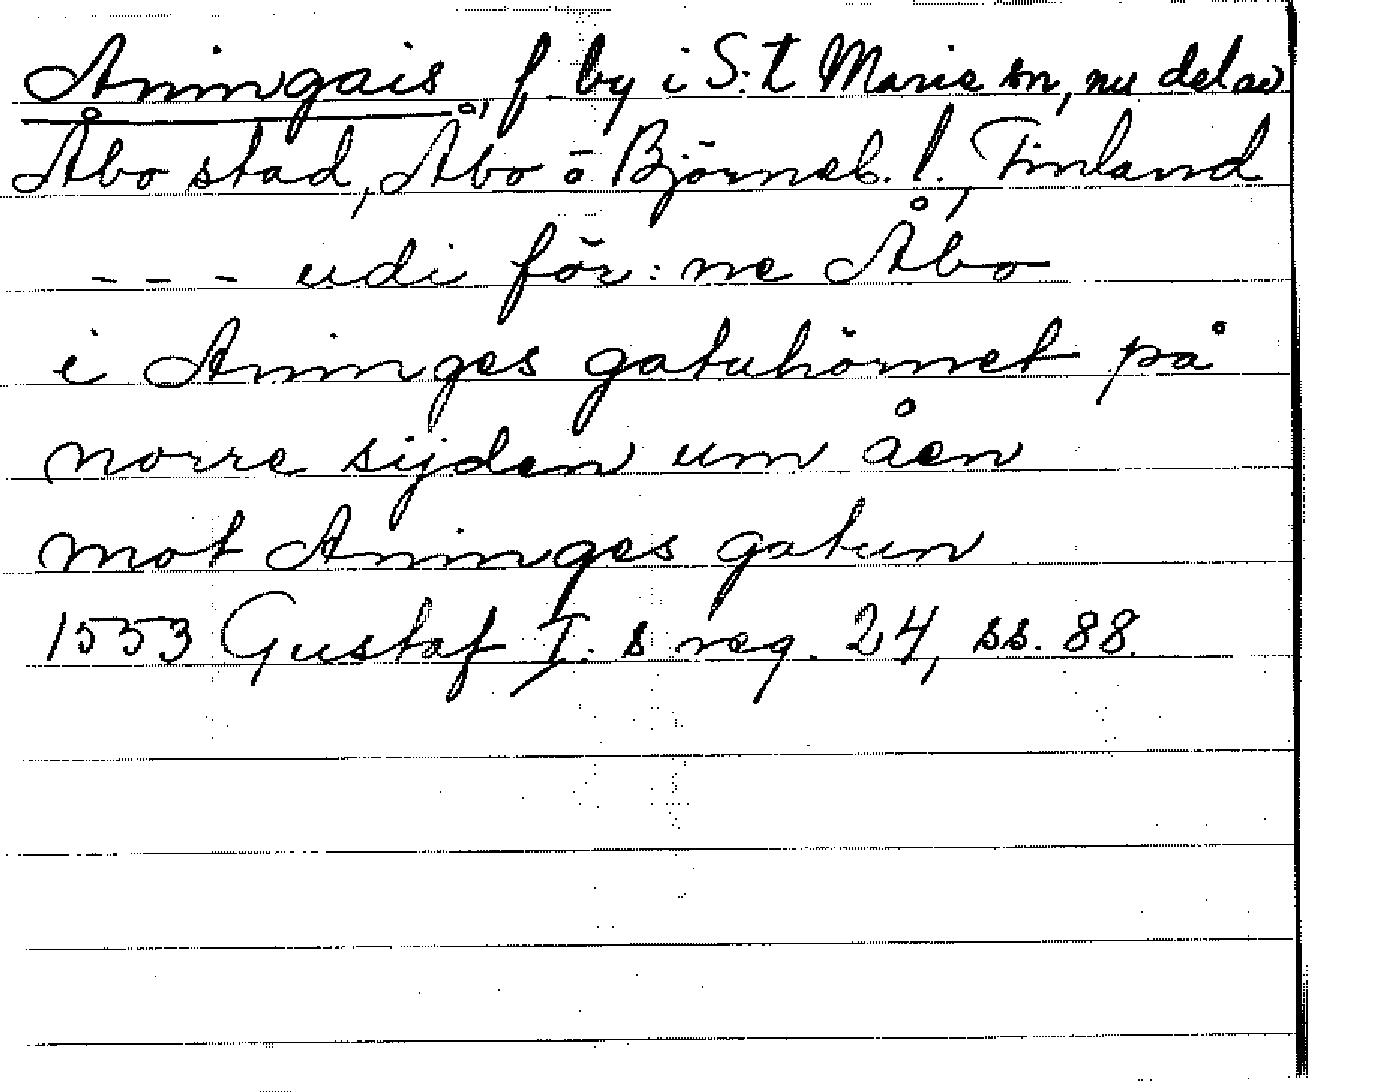 Aningais, f. by i S:t Marie sn, nu del av
Åbo stad, Åbo o Björneb. l., Finland
--- udi för:ne Åbo
i Aninges gatuhörnet på
norre sijden um åen
mot Aninges gatun
1553 Gustaf I:s reg. 24, ss. 88.